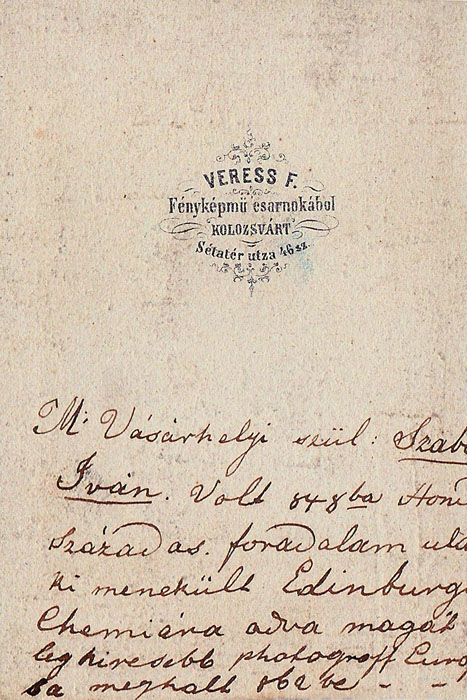 VERESS F.
Fényképmű csarnokából
KOLOZSVÁRT
Sétatér utza 46 sz.
M: Vásárhelyi szül: Szab
Iván. Volt 848ba Hon
százados. foradalom utá
ki menekült Edinburg
Chemiára adva magát
leghiresebb photograff Eur
ba meghalt 862be - -